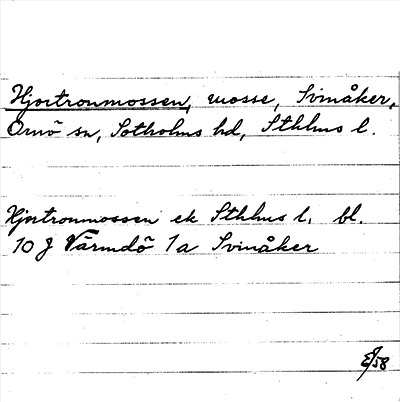 Hjortronmossen, mosse, Svinåker,
Ornö sn, Sotholms hd, Sthlms l.
Hjortronmossen ek Sthlms l. bl.
10 J Värmdö 1a Svinåker
E/58